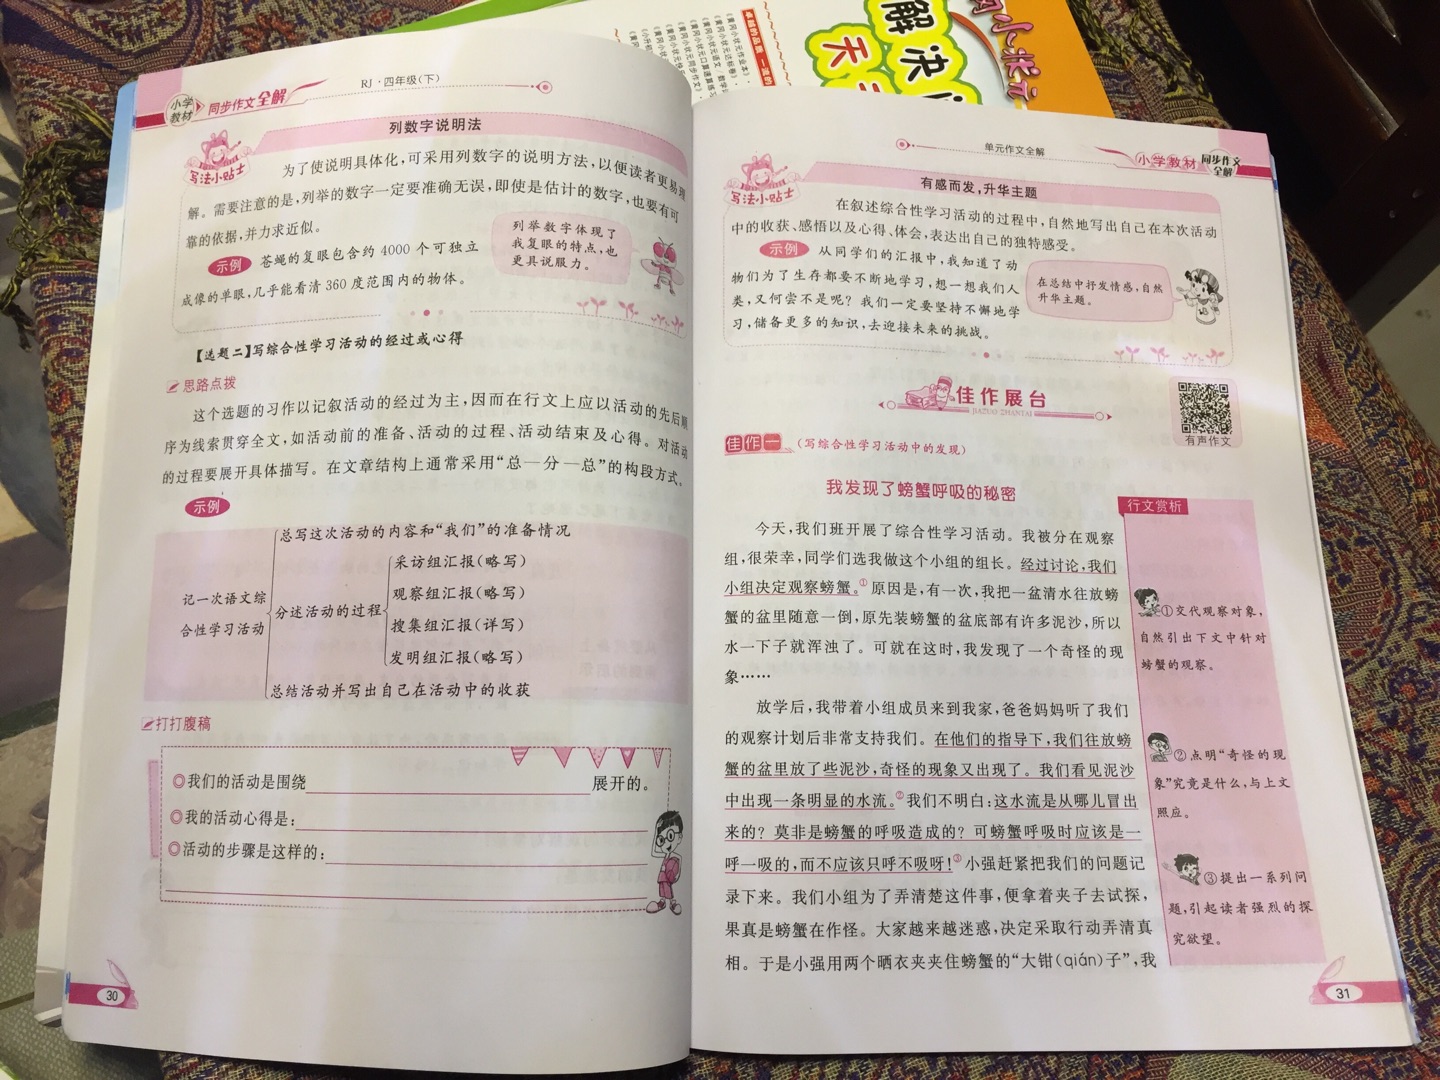 小学教材
同步作文全解
RJ·四年级(下)
写法小贴士
列数字说明法
为了使说明具体化,可采用列数字的说明方法,以便读者更易理
解。需要注意的是,列举的数字一定要准确无误,即使是估计的数字,也要有可
靠的依据,并力求近似。
示例 苍蝇的复眼包含约 4000 个可独立
成像的单眼,几乎能看清 360 度范围内的物体。
列举数字体现了
我复眼的特点,也
更具说服力。
【选题二】写综合性学习活动的经过或心得
思路点拨
这个选题的习作以记叙活动的经过为主,因而在行文上应以活动的先后顺
序为线索贯穿全文,如活动前的准备、活动的过程、活动结束及心得。对活动
的过程要展开具体描写。在文章结构上通常采用“总—分—总”的构段方式。
示例
记一次语文综
合性学习活动
总写这次活动的内容和“我们”的准备情况
分述活动的过程
采访组汇报(略写)
观察组汇报(略写)
搜集组汇报(详写)
发明组汇报(略写)
总结活动并写出自己在活动中的收获
打打腹稿
◎我们的活动是围绕 展开的。
◎我的活动心得是:
◎活动的步骤是这样的:
30
单元作文全解
小学教材
同步作文
全解
写法小贴士
有感而发,升华主题
在叙述综合性学习活动的过程中,自然地写出自己在本次活动
中的收获、感悟以及心得、体会,表达出自己的独特感受。
示例 从同学们的汇报中,我知道了动
物们为了生存都要不断地学习,想一想我们人
类,又何尝不是呢?我们一定要坚持不懈地学
习,储备更多的知识,去迎接未来的挑战。
在总结中抒发情感,自然
升华主题。
佳作展台
JIAZUO ZHANTAI
有声作文
佳作一 (写综合性学习活动中的发现)
我发现了螃蟹呼吸的秘密
今天,我们班开展了综合性学习活动。我被分在观察
组,很荣幸,同学们选我做这个小组的组长。经过讨论,我们
小组决定观察螃蟹。①原因是,有一次,我把一盆清水往放螃
蟹的盆里随意一倒,原先装螃蟹的盆底部有许多泥沙,所以
水一下子就浑浊了。可就在这时,我发现了一个奇怪的现
象……
放学后,我带着小组成员来到我家,爸爸妈妈听了我们
的观察计划后非常支持我们。在他们的指导下,我们往放螃
蟹的盆里放了些泥沙,奇怪的现象又出现了。我们看见泥沙
中出现一条明显的水流。②我们不明白:这水流是从哪儿冒出
来的?莫非是螃蟹的呼吸造成的?可螃蟹呼吸时应该是一
呼一吸的,而不应该只呼不吸呀!③小强赶紧把我们的问题记
录下来。我们小组为了弄清楚这件事,便拿着夹子去试探,
果真是螃蟹在作怪。大家越来越迷惑,决定采取行动弄清真
相。于是小强用两个晒衣夹夹住螃蟹的“大钳(qián)子”,我
行文赏析
①交代观察对象,
自然引出下文中针对
螃蟹的观察。
②点明“奇怪的现
象”究竟是什么,与上文
照应。
③提出一系列问
题,引起读者强烈的探
究欲望。
31
解决
天
小状元